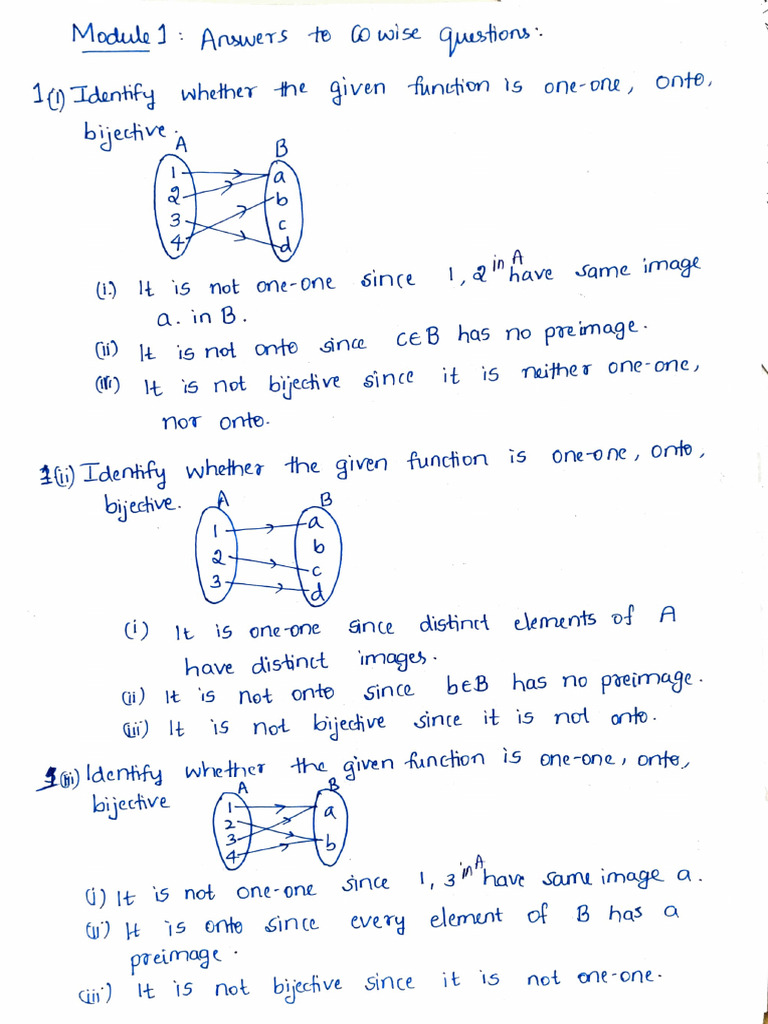 Module 1 : Answers to CO wise questions:
1(i) Identify whether the given function is one-one, onto,
bijective.
A B
1 a
2 b
3 c
4 d
(i.) It is not one-one since 1, 2 in A have same image
a. in B.
(ii) It is not onto since c∈B has no preimage.
(iii) It is not bijective since it is neither one-one,
nor onto.
1(ii) Identify whether the given function is one-one, onto,
bijective. A B
1 a
b
2 c
3 d
(i) It is one-one since distinct elements of A
have distinct images.
(ii) It is not onto since b∈B has no preimage.
(iii) It is not bijective since it is not onto.
1(iii) Identify whether the given function is one-one, onto,
bijective A B
1 a
2
3 b
4
(i) It is not one-one since 1, 3 in A have same image a.
(ii) It is onto since every element of B has a
preimage.
(iii) It is not bijective since it is not one-one.